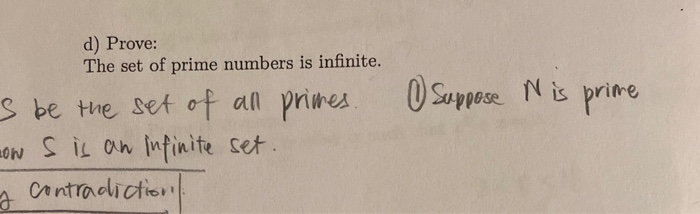 d) Prove:
The set of prime numbers is infinite.
S be the set of all primes.
① Suppose N is prime
ow S is an infinite set.
contradiction